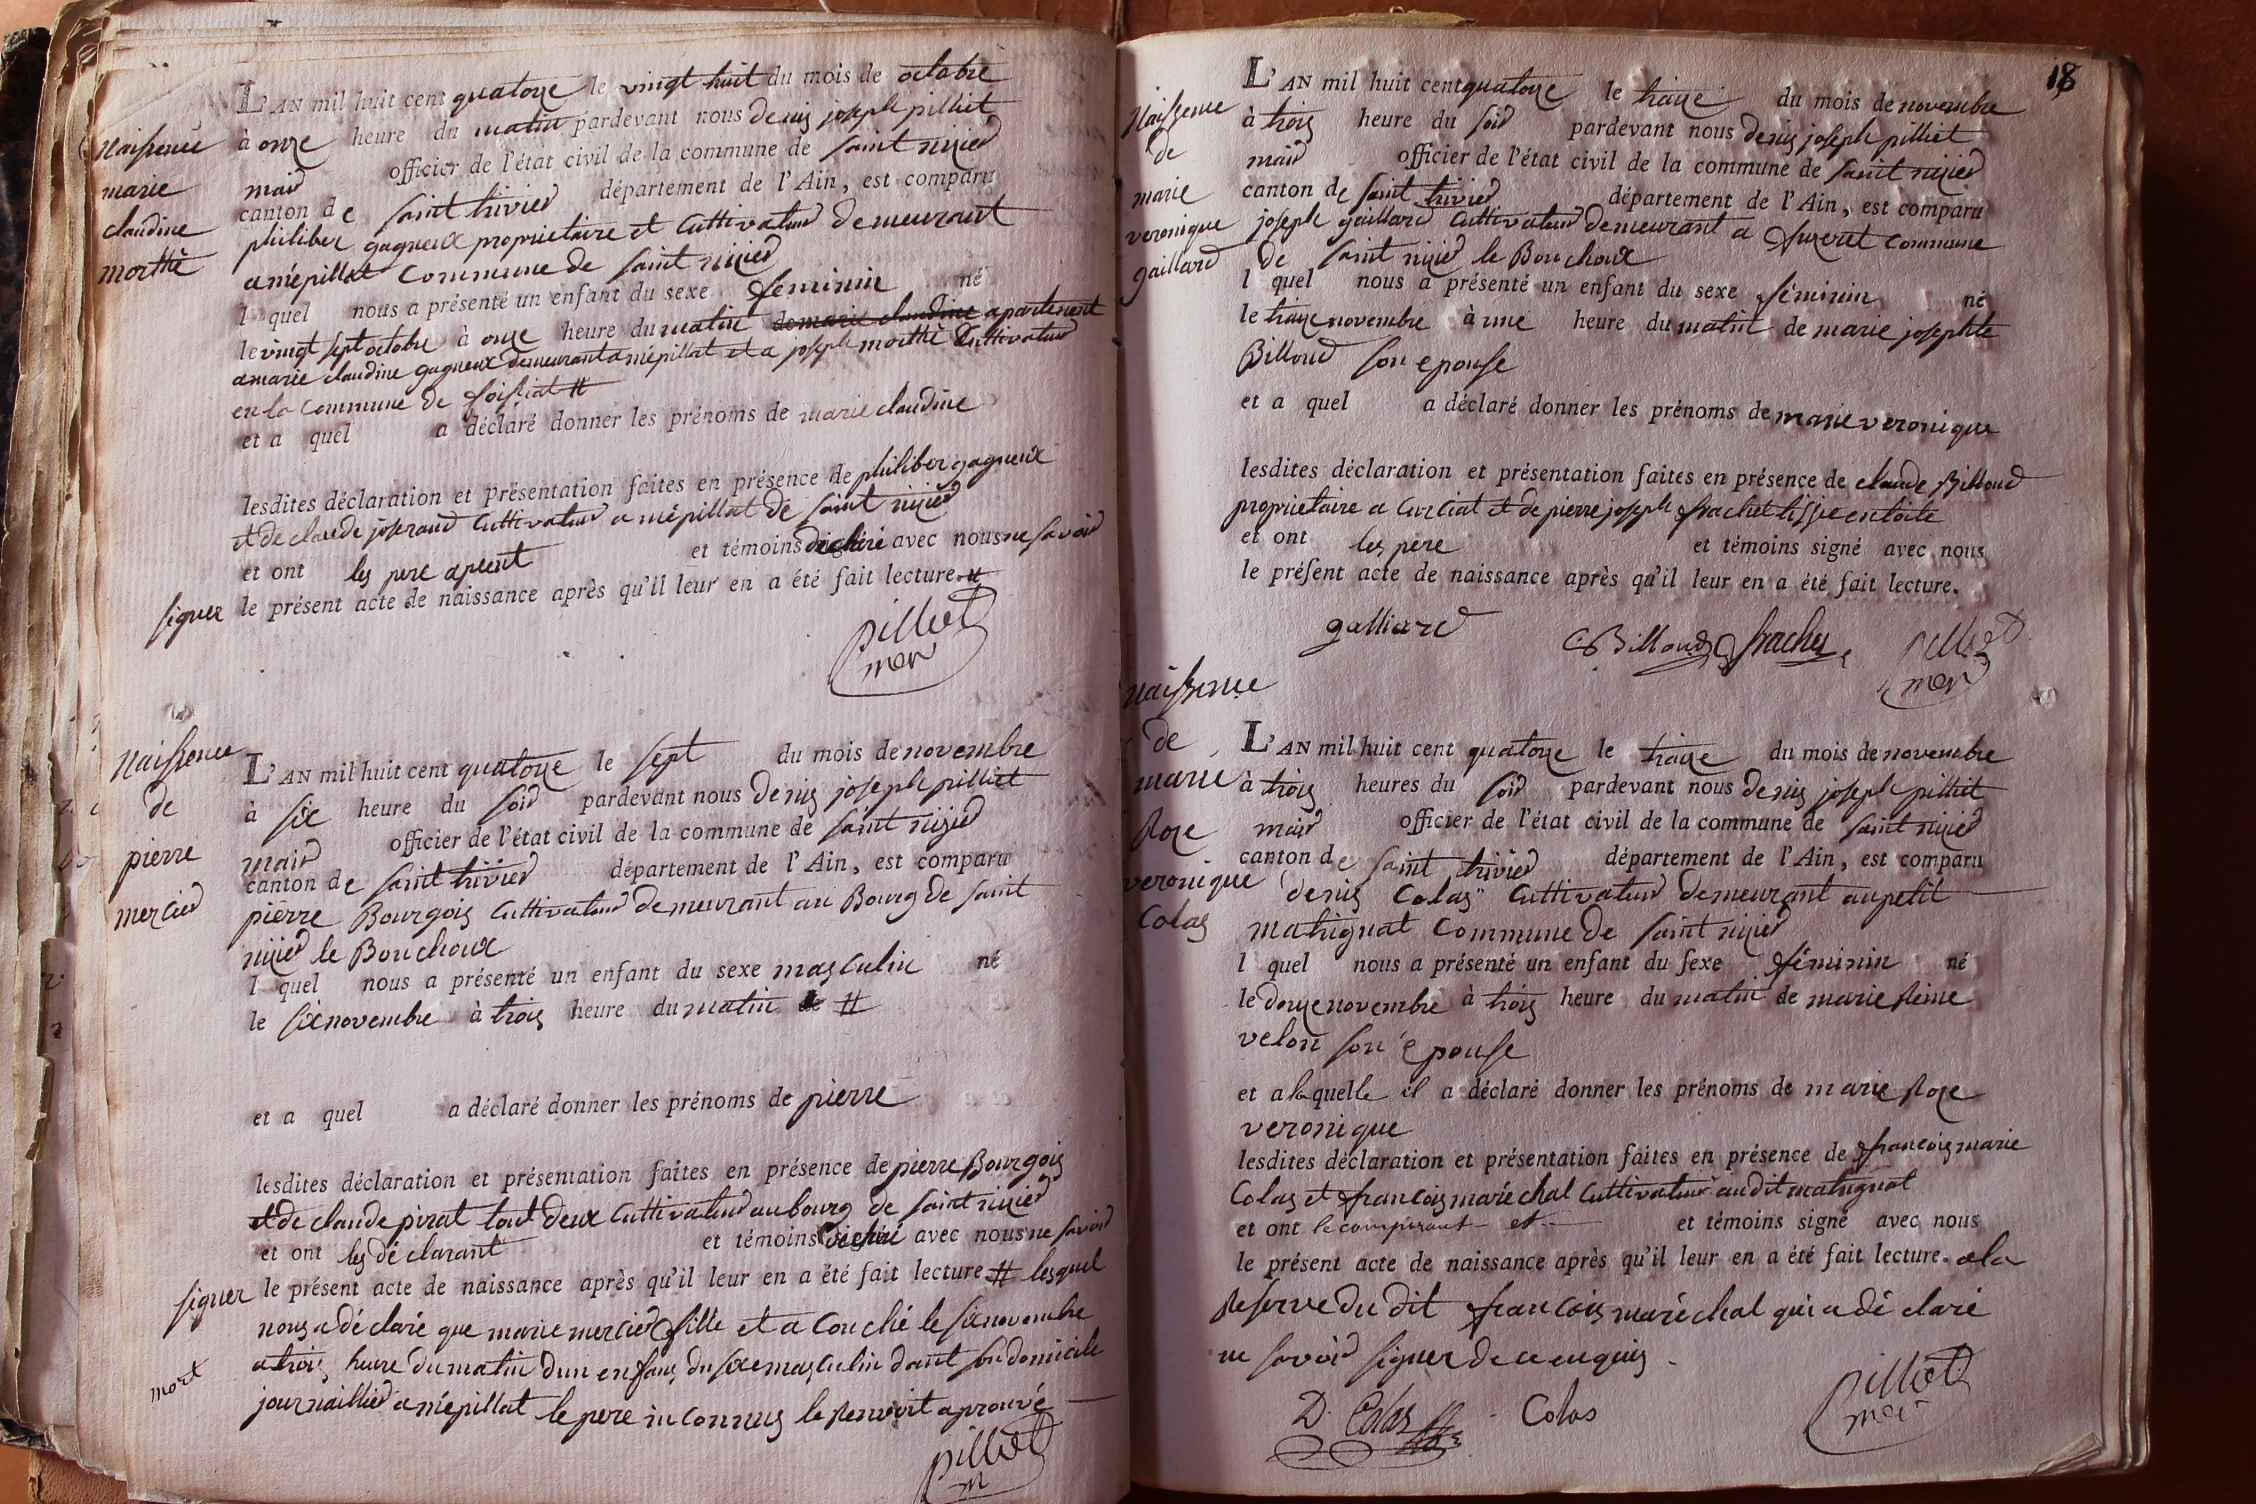 Naissence
marie
claudine
morthé
L'AN mil huit cent quatorze le vingt huit du mois de octobre
à onze heure du matin pardevant nous denis joseph pilliet
mair officier de l'état civil de la commune de saint nizier
canton de saint trivier département de l'Ain, est comparu
philiber gagneux proprietaire et Cultivateur demeurant
a mépillat Commune de saint nizier
l quel nous a présenté un enfant du sexe feminin né
le vingt sept octobre à onze heure du matin de marie claudine apartenent
a marie claudine gagneux demeurant a mépillat et a joseph morthé Cultivateur
en la Commune de foissiat #
et a quel a déclaré donner les prénoms de marie claudine
lesdites déclaration et présentation faites en présence de philiber gagneux
et de claude joseraud Cultivateur a mépillat de saint nizier
et ont les pere et témoins déclaré avec nous ne savoir
signer le présent acte de naissance après qu'il leur en a été fait lecture. #
pilliet
mer
Naissence
de
pierre
mercier
L'AN mil huit cent quatorze le sept du mois de novembre
à six heure du soir pardevant nous denis joseph pilliet
mair officier de l'état civil de la commune de saint nizier
canton de saint trivier département de l'Ain, est comparu
pierre Bourgois Cultivateur demeurant au Bourg de saint
nizier le Bouchoux
l quel nous a présenté un enfant du sexe masculin né
le six novembre à trois heure du matin de #
et a quel a déclaré donner les prénoms de pierre
lesdites déclaration et présentation faites en présence de pierre Bourgois
et de claude pirat tout deux Cultivateur au bourg de saint nizier
et ont les déclarant et témoins déclaré avec nous ne savoir
signer le présent acte de naissance après qu'il leur en a été fait lecture. # lesquel
nous a déclaré que marie mercier fille et a Couché le six novembre
a trois heure du matin d'un enfans du sixe masculin dont son domicile
mort
journaillier a mépillat le pere inconnus le renvoit aprouvé
pilliet
m
18
Naissence
de
marie
veronique
gaillard
L'AN mil huit cent quatorze le traize du mois de novembre
à trois heure du soir pardevant nous denis joseph pilliet
mair officier de l'état civil de la commune de saint nizier
canton de saint trivier département de l'Ain, est comparu
joseph gaillard Cultivateur demeurant a Commune
de saint nizier le Bouchoux
l quel nous a présenté un enfant du sexe féminin né
le traize novembre à une heure du matin de marie josephte
Billoud son epouse
et a quel a déclaré donner les prénoms de marie veronique
lesdites déclaration et présentation faites en présence de claude Billoud
proprietaire a Curciat et de pierre joseph frachet tissie en toile
et ont les pere et témoins signé avec nous
le présent acte de naissance après qu'il leur en a été fait lecture.
galliard
C Billoud frachet
pilliet
mer
Naissence
de
marie
Roze
veronique
Colas
L'AN mil huit cent quatorze le traize du mois de novembre
à trois heures du soir pardevant nous denis joseph pilliet
mair officier de l'état civil de la commune de saint nizier
canton de saint trivier département de l'Ain, est comparu
denis Colas Cultivateur demeurant au petit
matrignat Commune de saint nizier
l quel nous a présenté un enfant du sexe féminin né
le douze novembre à trois heure du matin de marie Reine
velon son épouse
et a laquelle il a déclaré donner les prénoms de marie Roze
veronique
lesdites déclaration et présentation faites en présence de françois marie
Colas et françois maréchal Cultivateur audit matrignat
et ont le comparant et témoins signé avec nous
le présent acte de naissance après qu'il leur en a été fait lecture. a la
Reserve du dit françois maréchal qui a déclaré
ne savoir signer de ce enquis
D. Colas Colas
pilliet
mer